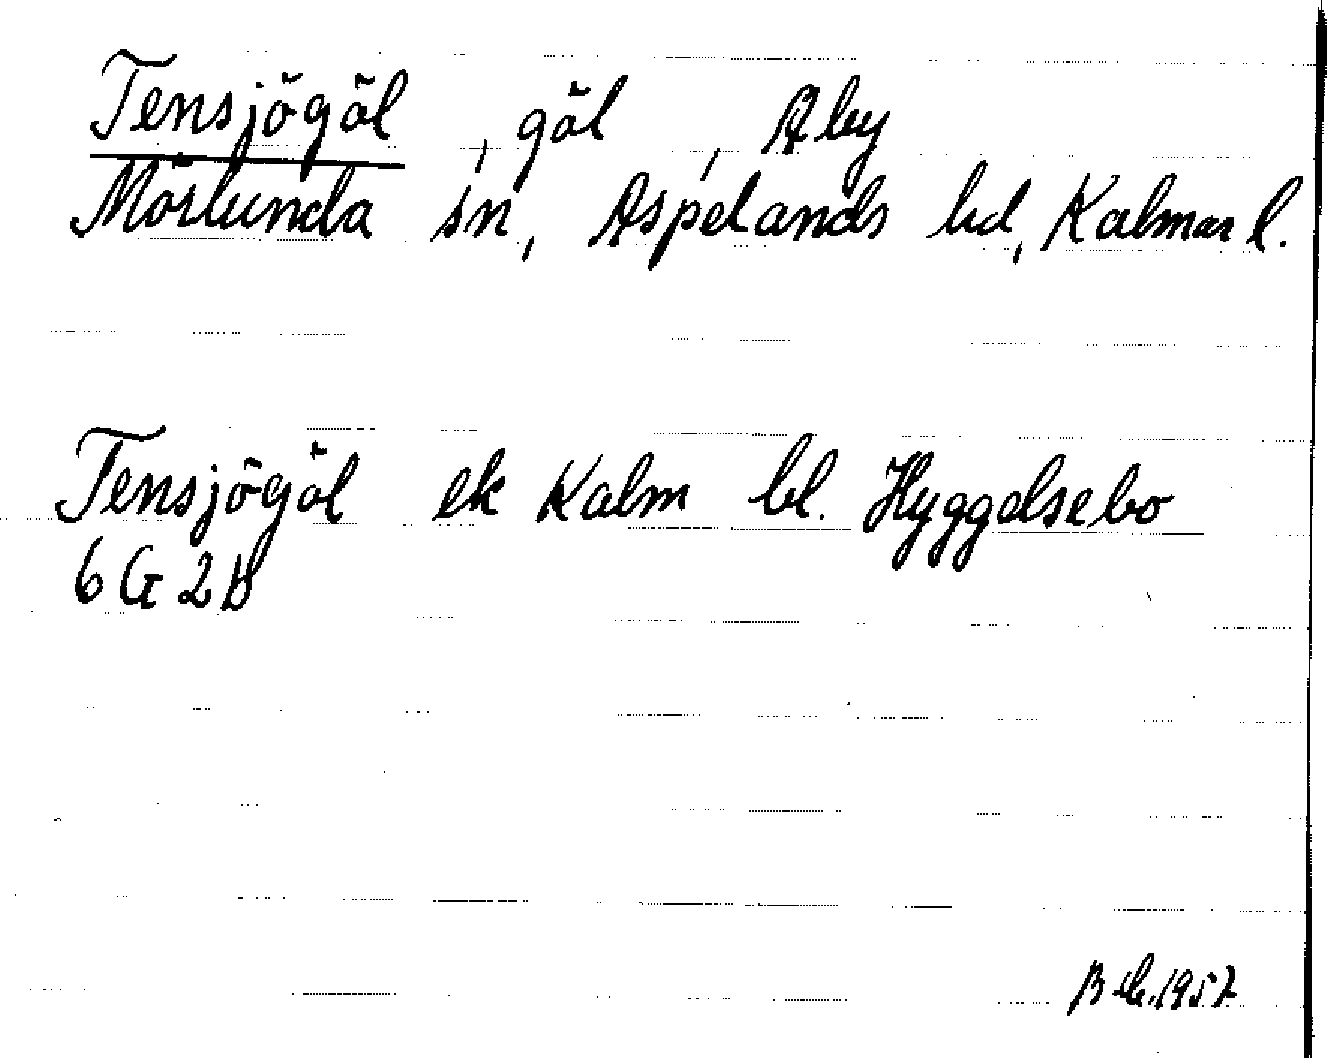 Tensjögöl , göl , Åby
Mörlunda sn, Aspelands hd, Kalmar l.
Tensjögöl ek Kalm bl. Hyggelsebo
6 G 2 b
1957